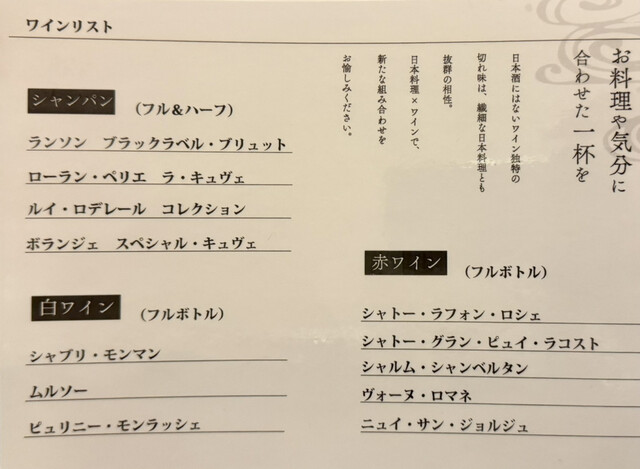 ワインリスト
お料理や気分に
合わせた一杯を
日本酒にはないワイン独特の
切れ味は、繊細な日本料理とも
抜群の相性。
日本料理×ワインで、
新たな組み合わせを
お愉しみください。
シャンパン （フル＆ハーフ）
ランソン ブラックラベル・ブリュット
ローラン・ペリエ ラ・キュヴェ
ルイ・ロデレール コレクション
ボランジェ スペシャル・キュヴェ
白ワイン （フルボトル）
シャブリ・モンマン
ムルソー
ピュリニー・モンラッシェ
赤ワイン （フルボトル）
シャトー・ラフォン・ロシェ
シャトー・グラン・ピュイ・ラコスト
シャルム・シャンベルタン
ヴォーヌ・ロマネ
ニュイ・サン・ジョルジュ